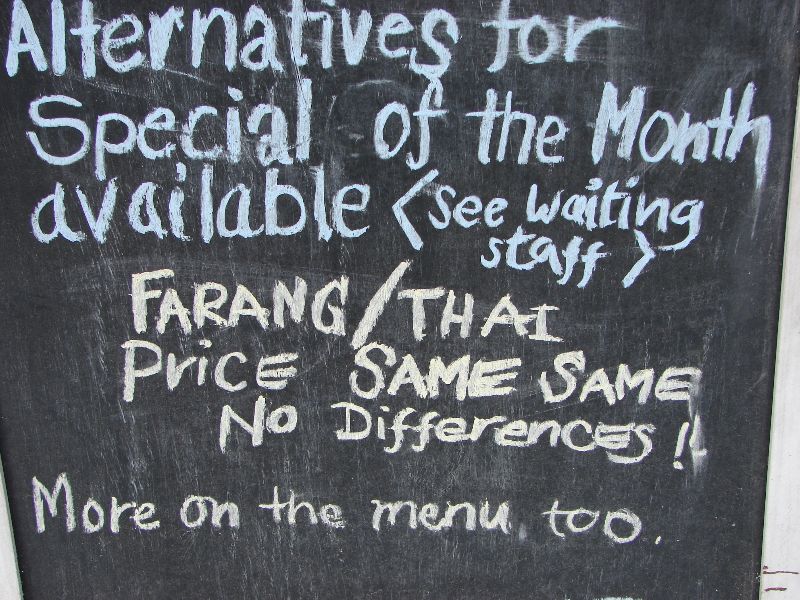 Alternatives for
Special of the Month
available <see waiting
staff>
FARANG/THAI
Price SAME SAME
No Differences!
More on the menu, too.